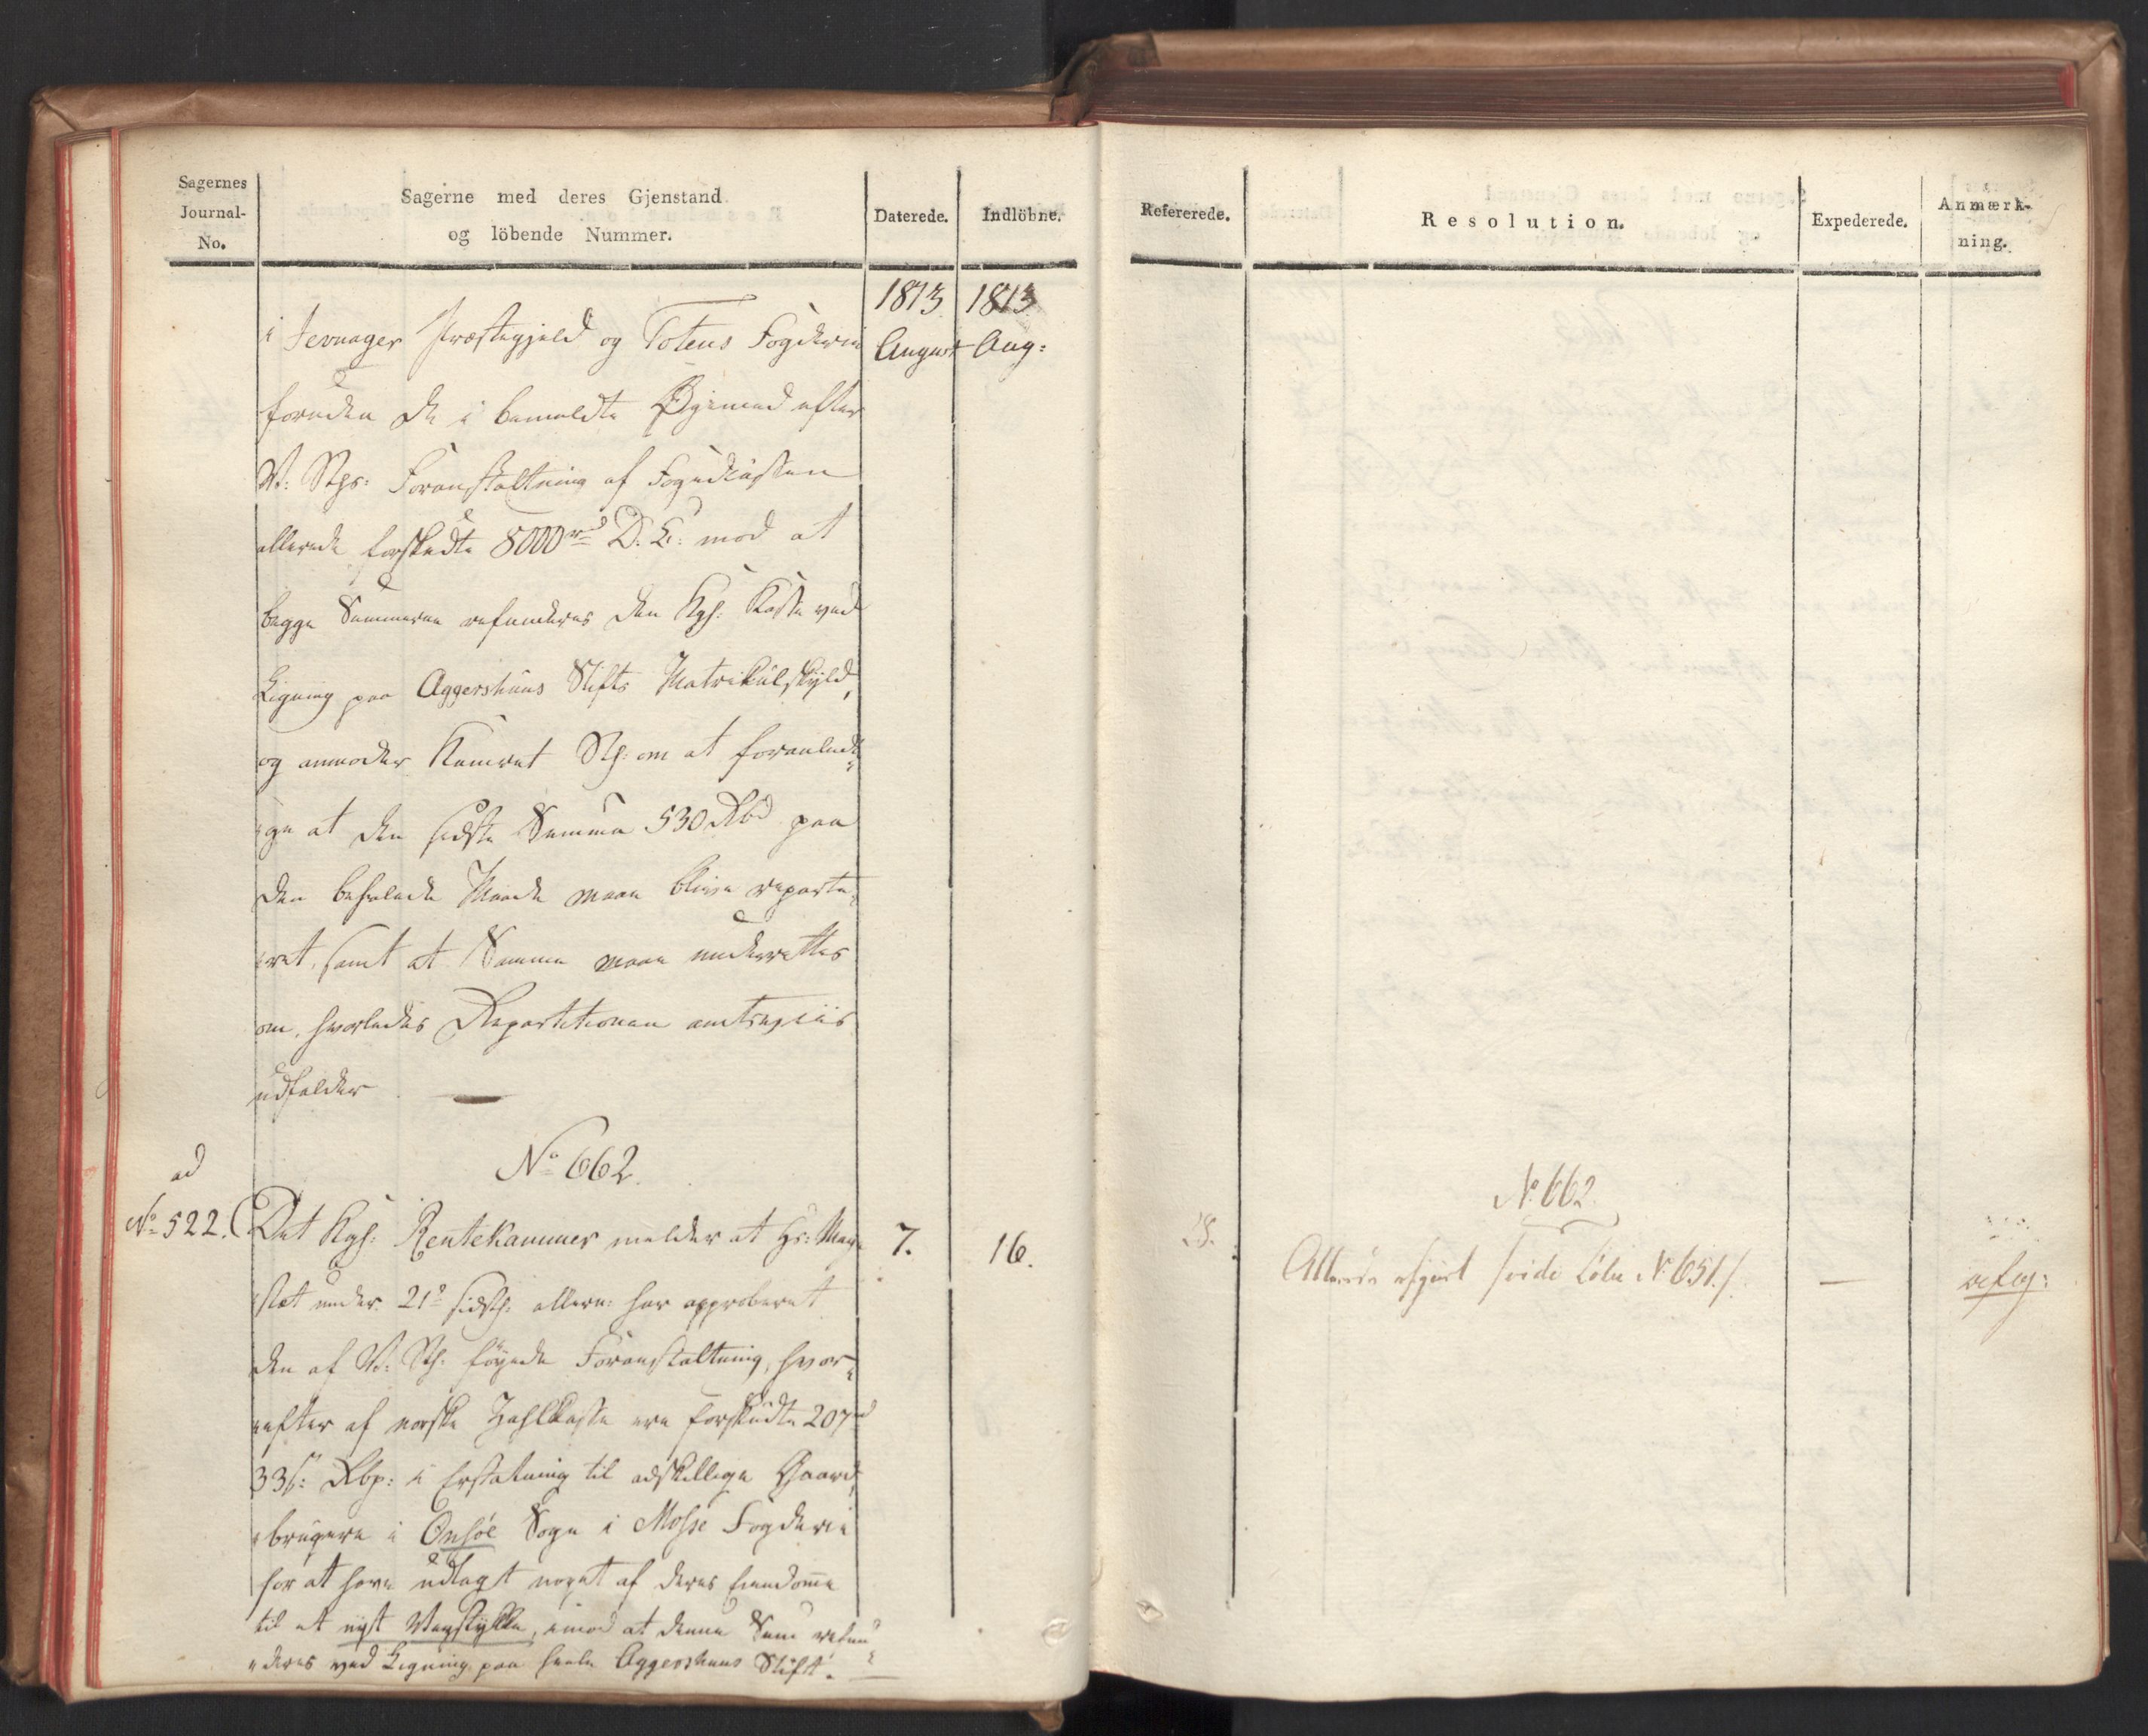 Sagernes
Journal-
No.
Sagerne med deres Gjenstand
og löbende Nummer.
Daterede.
Indlöbne.
1813.
1813
August
Aug:
i Jevnager Præstegjeld og Totens Fogderie
foruden de i bemeldte Øyemed efter
V: Stgs: Foranstaltning af Fogedkassen
allerede forskudte 8000 rd D. C: mod at
begge Summerne refunderes den Kgl: Kasse ved
Ligning paa Aggershuus Stifts Matrikulskyld,
og anmoder Kamret Stg: om at foranledi-
ge at den sidste Summa 530 Rbd paa
den befalede Maade maa blive reparte-
ret, samt at Samme maae underrettes
om, hvorledes Repartitionen amtsviis
udfalder
No 662.
ad
No 522.
Det Kgl: Rentekammer melder at Hs: May-
stæt under 21de sidstl: allern: har approberet
den af V: Stg: føyede Foranstaltning, hvor-
efter af norske Zahlkasse ere forskudte 207 rd
33 s: Rbp: i Erstatning til adskillige Gaard-
brugere i Onsøe Sogn i Mosse Fogderie
for at have udlagt noget af deres Eiendomme
til et nyt Veystykke, imod at denne Sum refun-
deres ved Ligning paa heele Aggershuus Stift.
7.
16.
Refererede.
Resolution.
Expederede.
Anmærk-
ning.
No 662.
28.
Allerede afgiort /vide Løbe No 651./
—